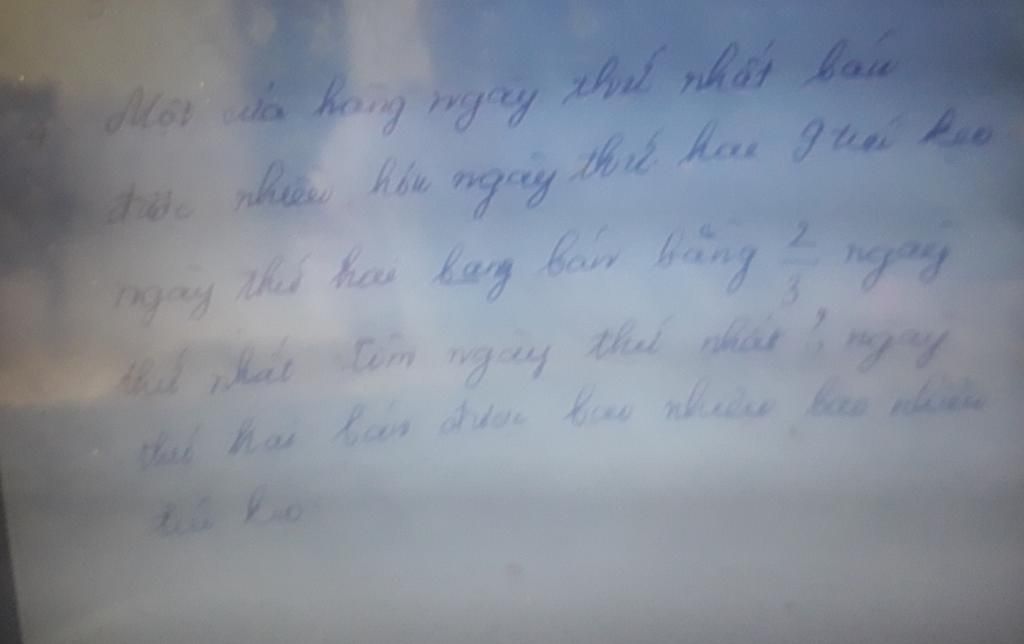 Một cửa hàng ngày thứ nhất bán
được nhiều hơn ngày thứ hai 9 túi kẹo
ngày thứ hai bang bán bằng 2/3 ngày
thứ nhất tìm ngày thứ nhất ? ngày
thứ hai bán được bao nhiêu bao nhiêu
túi kẹo